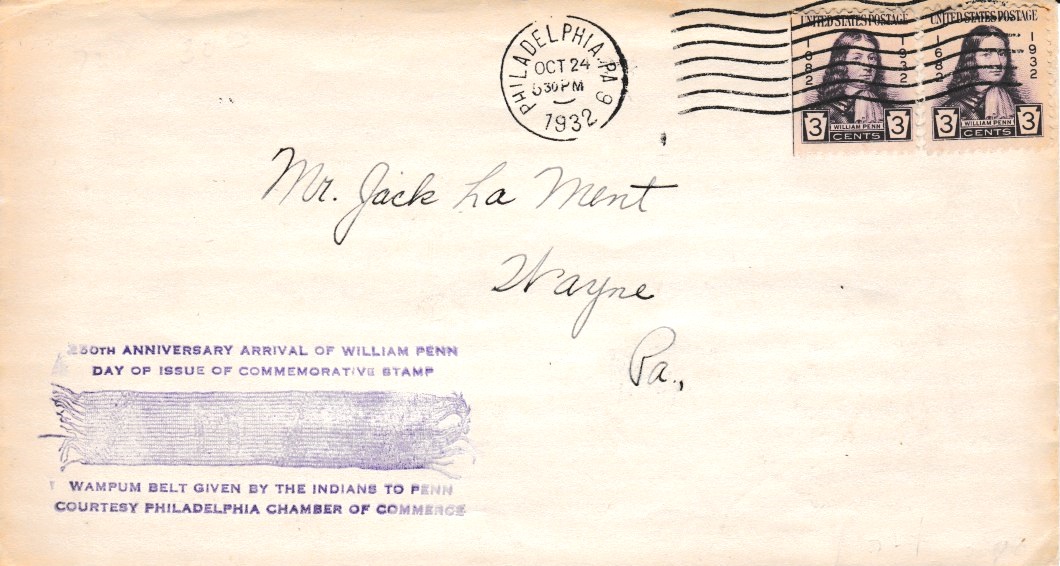 PHILADELPHIA, PA 9
OCT 24
530 PM
1932
UNITED STATES POSTAGE
1682 1932
3 WILLIAM PENN 3
CENTS
UNITED STATES POSTAGE
1682 1932
3 WILLIAM PENN 3
CENTS
Mr. Jack La Ment
Wayne
Pa.,
250TH ANNIVERSARY ARRIVAL OF WILLIAM PENN
DAY OF ISSUE OF COMMEMORATIVE STAMP
WAMPUM BELT GIVEN BY THE INDIANS TO PENN
COURTESY PHILADELPHIA CHAMBER OF COMMERCE